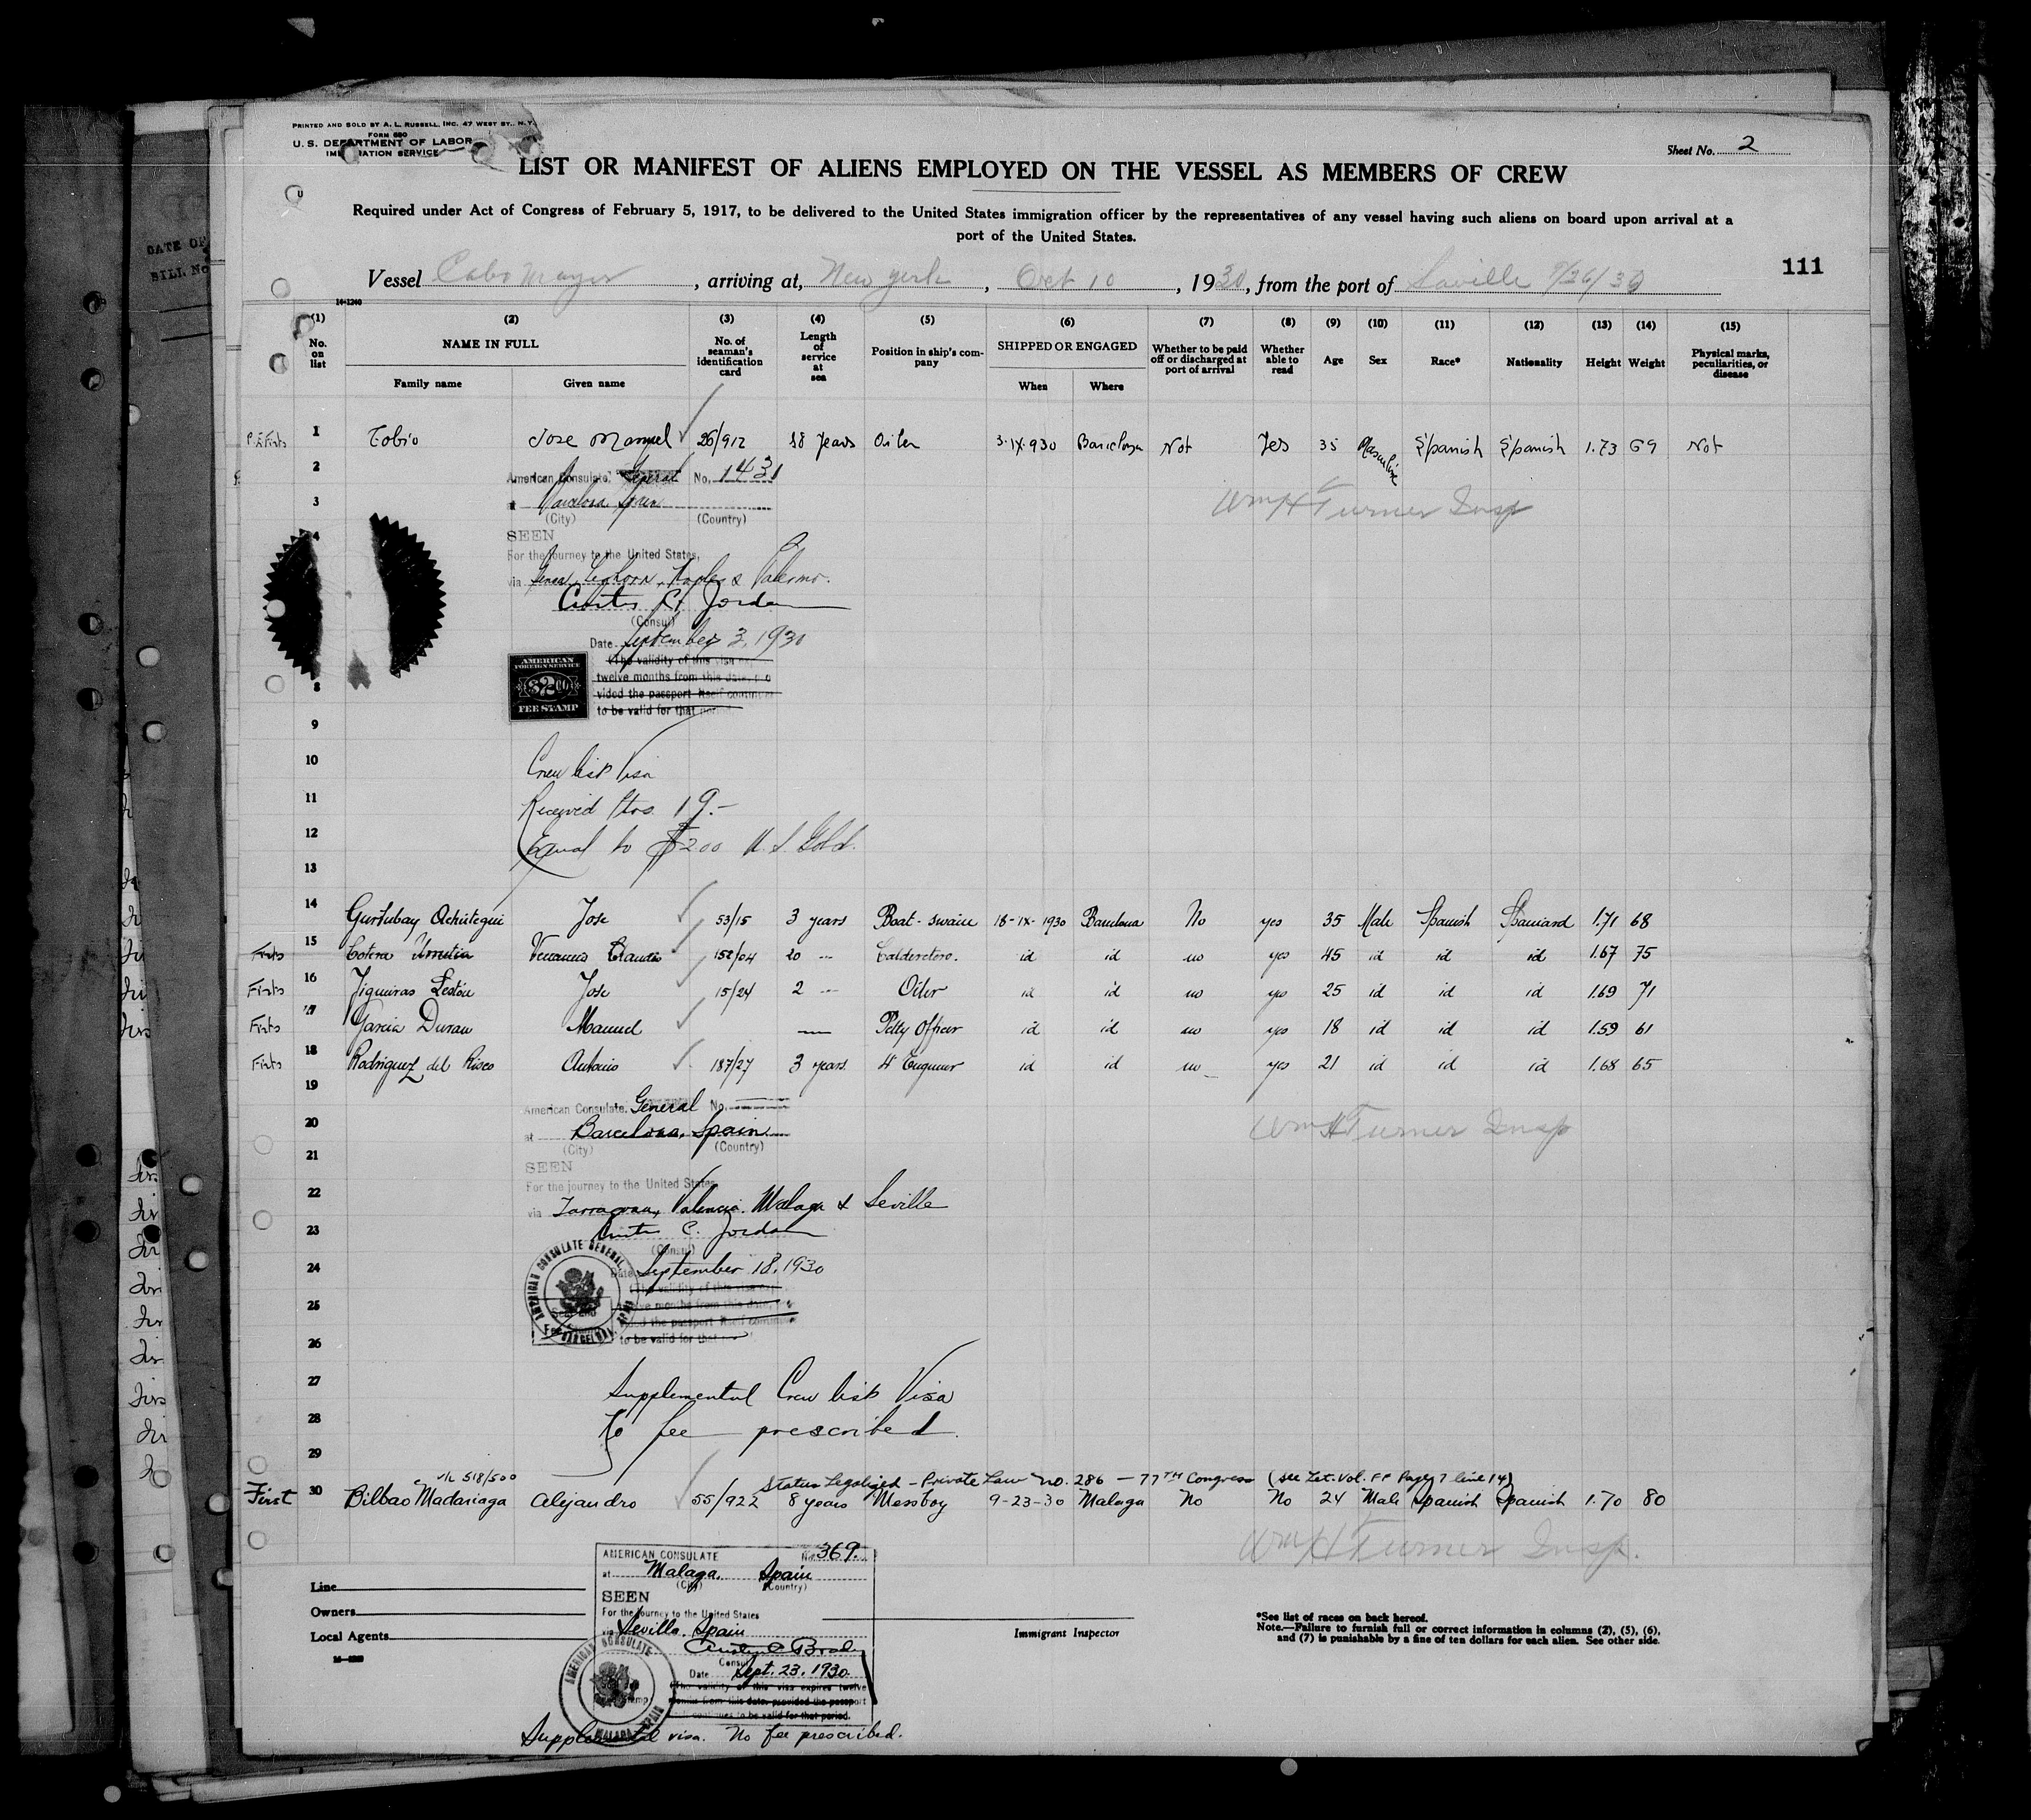 PRINTED AND SOLD BY A. L. RUSSELL, INC. 47 WEST ST., N.Y.
FORM 680
U. S. DEPARTMENT OF LABOR
IMMIGRATION SERVICE
Sheet No. 2
LIST OR MANIFEST OF ALIENS EMPLOYED ON THE VESSEL AS MEMBERS OF CREW
Required under Act of Congress of February 5, 1917, to be delivered to the United States immigration officer by the representatives of any vessel having such aliens on board upon arrival at a
port of the United States.
111
Vessel Cabo Mayor, arriving at, New York, Oct 10, 1930, from the port of Saville 9/26/30
14-1240
(1) (2) (3) (4) (5) (6) (7) (8) (9) (10) (11) (12) (13) (14) (15)
No. on list NAME IN FULL Family name Given name No. of seaman's identification card Length of service at sea Position in ship's company SHIPPED OR ENGAGED When Where Whether to be paid off or discharged at port of arrival Whether able to read Age Sex Race* Nationality Height Weight Physical marks, peculiarities, or disease
1 Tobio Jose Manuel 26/912 18 years Oiler 3-IX-930 Barcelona Not Yes 35 Masculine Spanish Spanish 1.73 69 Not
2 American Consulate General No. 1431
3 at Barcelona, Spain Wm H Turner Insp
(City) (Country)
4 SEEN
For the journey to the United States,
via Genoa, Leghorn, Naples & Palermo.
Curtis C. Jordan
(Consul)
Date September 3, 1930
(The validity of this visa
twelve months from this date, pro
vided the passport itself continues
to be valid for that period
AMERICAN FOREIGN SERVICE
$2.00
FEE STAMP
8
9
10 Crew list Visa
11 Received Ptas. 19.-
12 Equal to $2.00 U. S. Gold.
13
14 Gurtubay Ochutegui Jose 53/15 3 years Boat-swain 18-IX-1930 Barcelona No yes 35 Male Spanish Spaniard 1.71 68
Firts 15 Cotera Urrutia 152/04 20 Calderetero. id id no yes 45 id id id 1.67 75
Firts 16 Figueiras Lestón Jose 15/24 2 Oiler id id no yes 25 id id id 1.69 71
Firts 17 Garcia Duran Manuel Petty Officer id id no yes 18 id id id 1.59 61
Firts 18 Rodriguez del Risco Antonio 187/27 3 years 4º Engineer id id no yes 21 id id id 1.68 65
19 American Consulate General No.
20 at Barcelona, Spain Wm H Turner Insp
(City) (Country)
21 SEEN
22 For the journey to the United States
via Tarragona, Valencia, Malaga & Seville
23 Curtis C. Jordan
(Consul)
24 Date September 18, 1930
(The validity of this visa
25 twelve months from this date,
vided the passport itself continues
26 to be valid for that
AMERICAN CONSULATE GENERAL BARCELONA, SPAIN
27 Supplemental Crew list Visa
28 No fee prescribed.
29
518/500
Status Legalized - Private Law No. 286 - 77TH Congress (see Let. Vol. FF Page 7 line 14)
First 30 Bilbao Madariaga Alejandro 55/922 8 years Messboy 9-23-30 Malaga No No 24 Male Spanish Spanish 1.70 80
Wm H Turner Insp.
AMERICAN CONSULATE No. 369.
at Malaga, Spain
(City) (Country)
SEEN
For the journey to the United States
via Sevilla, Spain
Consul
Date Sept. 23, 1930
(The validity of this visa expires twelve
months from this date, provided the passport
continues to be valid for that period.
AMERICAN CONSULATE MALAGA SPAIN
Supplemental visa. No fee prescribed.
Line
Owners
Local Agents
Immigrant Inspector
*See list of races on back hereof.
Note.—Failure to furnish full or correct information in columns (2), (5), (6),
and (7) is punishable by a fine of ten dollars for each alien. See other side.
DATE OF
BILL No